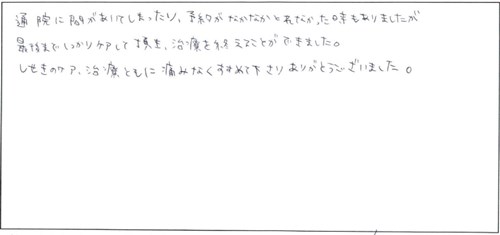 通院に間があいてしまったり、予約がなかなかとれなかった時もありましたが
最後までしっかりケアして頂き、治療を終えることができました。
しせきのケア、治療ともに痛みなくすすめて下さりありがとうございました。